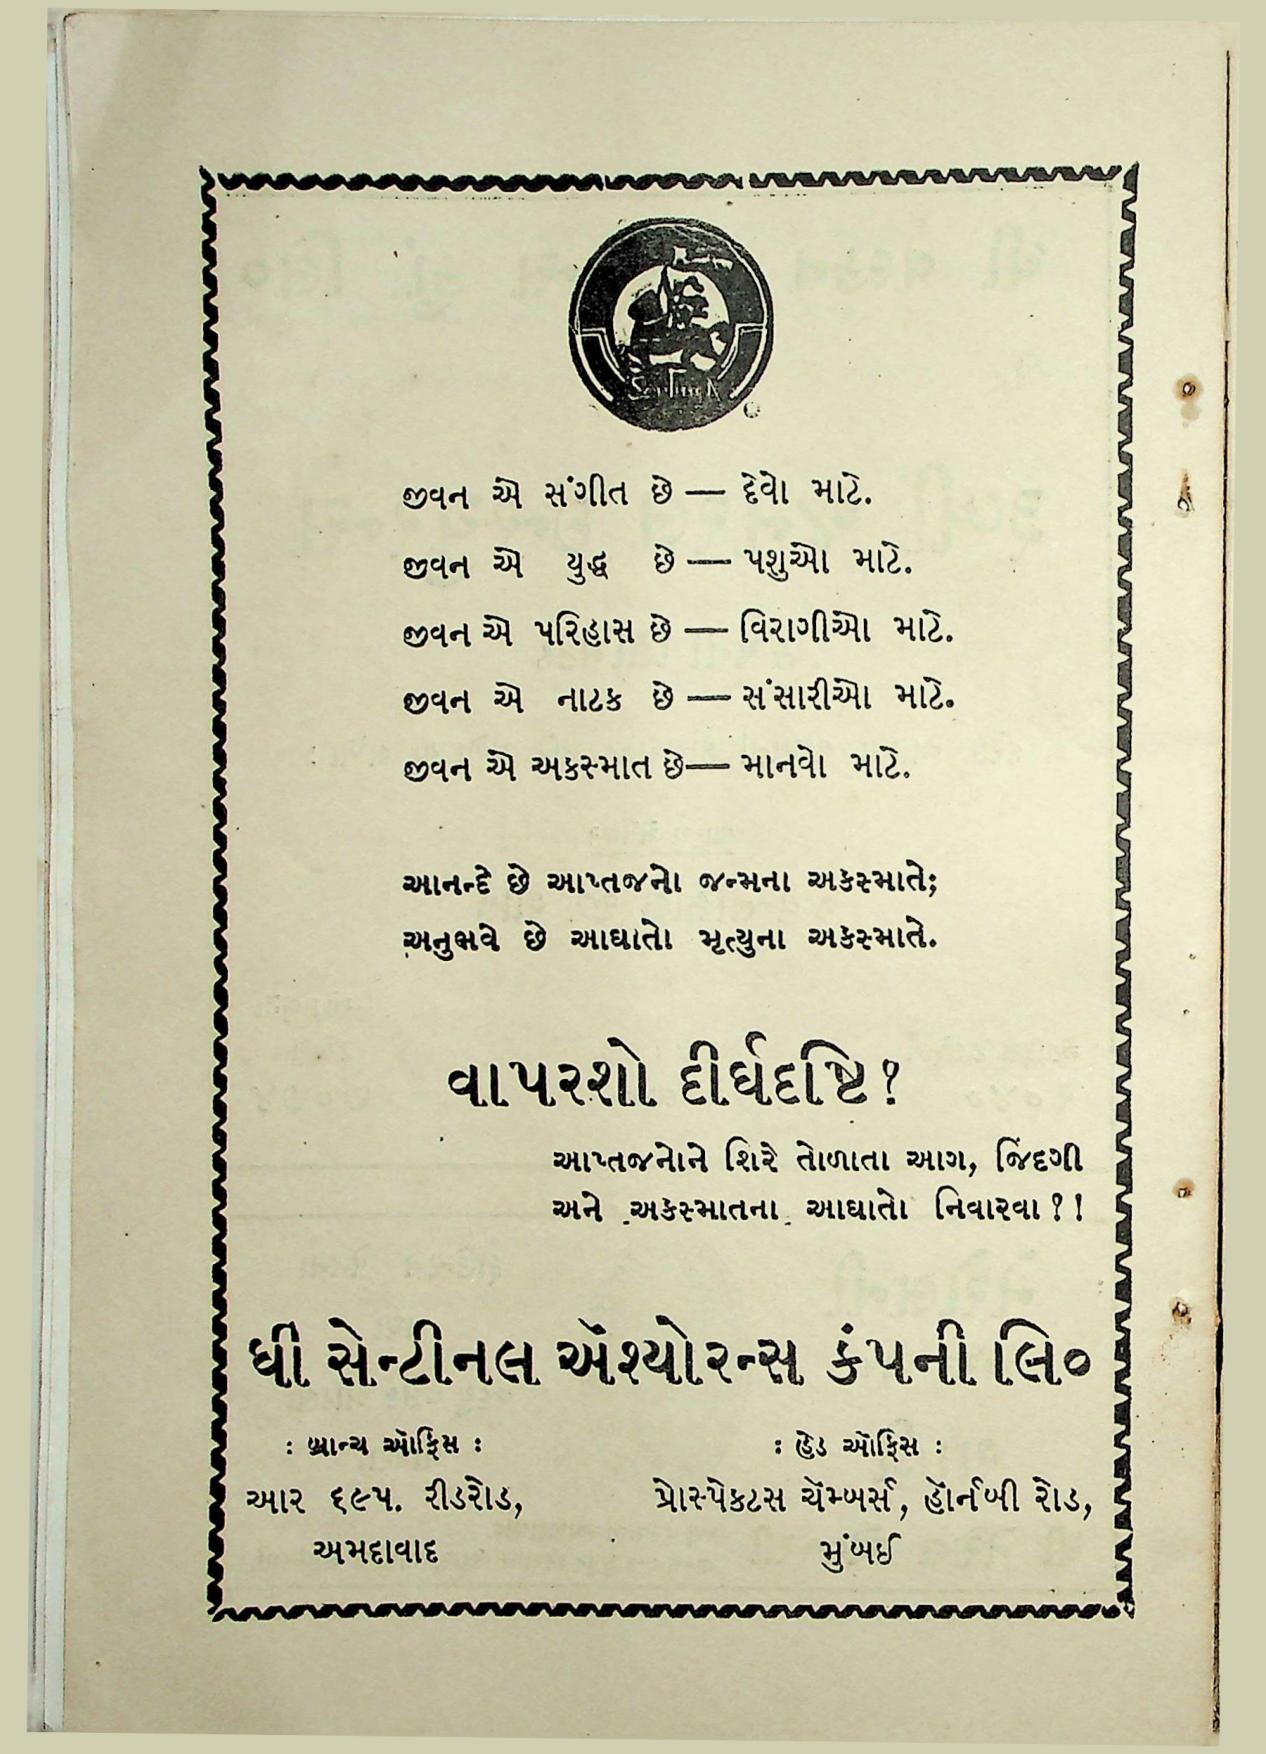 જીવન એ સંગીત છે — દેવો માટે.
જીવન એ યુદ્ધ છે — પશુઓ માટે.
જીવન એ પરિહાસ છે — વિરાગીઓ માટે.
જીવન એ નાટક છે — સંસારીઓ માટે.
જીવન એ અકસ્માત છે— માનવો માટે.
આનન્દે છે આપ્તજનો જન્મના અકસ્માતે;
અનુભવે છે આઘાતો મૃત્યુના અકસ્માતે.
વાપરશો દીર્ઘદષ્ટિ?
આપ્તજનોને શિરે તોળાતા આગ, જિંદગી
અને અકસ્માતના આઘાતો નિવારવા?!
ધી સેન્ટીનલ ઍશ્યોરન્સ કંપની લિ૦
: બ્રાન્ચ ઑફિસ :
આર ૬૯૫. રીડરોડ,
અમદાવાદ
: હેડ ઑફિસ :
પ્રોસ્પેકટસ ચૅમ્બર્સ, હૉર્નબી રોડ,
મુંબઈ